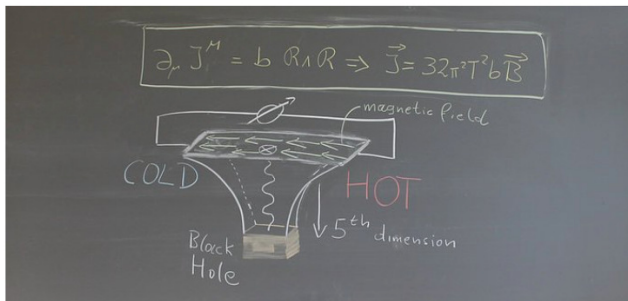 ∂μ J^μ = b R∧R ⇒ J⃗ = 32π²T²b B⃗
magnetic field
COLD
HOT
5th dimension
Black
Hole